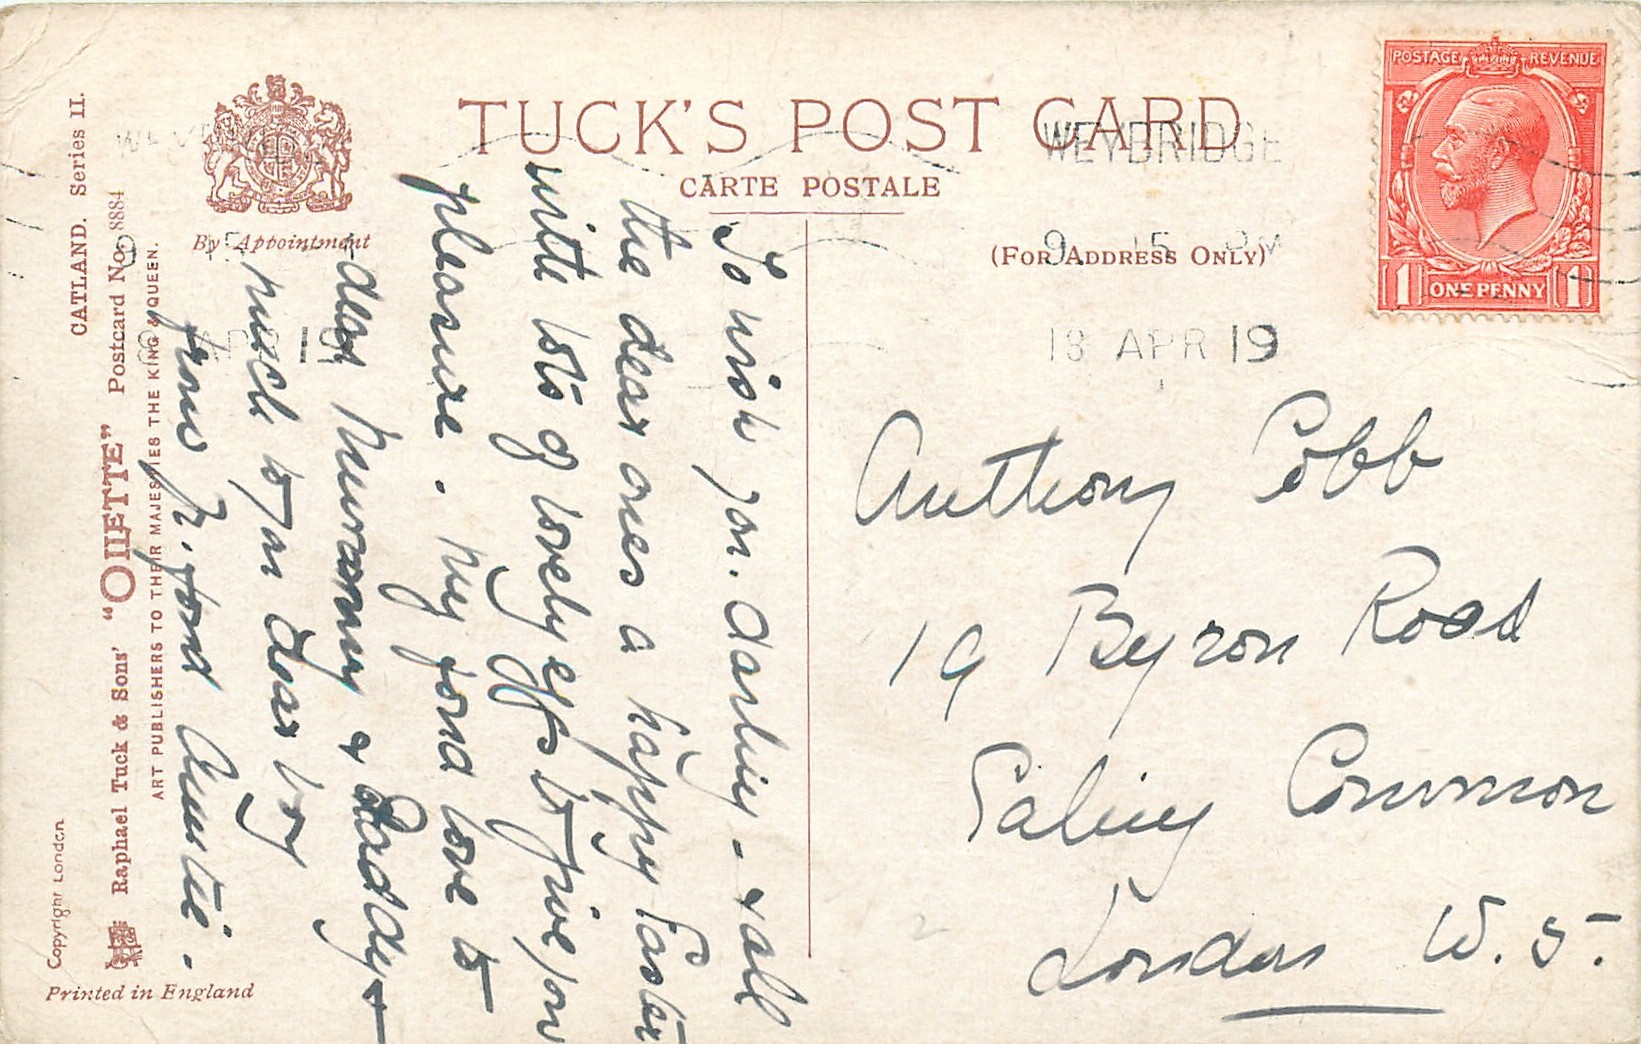 TUCK'S POST CARD
CARTE POSTALE
(FOR ADDRESS ONLY)
By Appointment
WEYBRIDGE
9. 15 PM
18 APR 19
POSTAGE REVENUE
1 ONE PENNY 1
CATLAND. Series II.
Raphael Tuck & Sons' "OILETTE" Postcard No. 8884
ART PUBLISHERS TO THEIR MAJESTIES THE KING & QUEEN.
Copyright London
Printed in England
To wish you. darling - & all
the dear ones a happy Easter
with lots of lovely eggs to give you
pleasure. My fond love to
dear Mummy & Daddy &
much to you dear boy
from Yr. fond Auntie.
Anthony Cobb
19 Byron Road
Ealing Common
London W. 5.